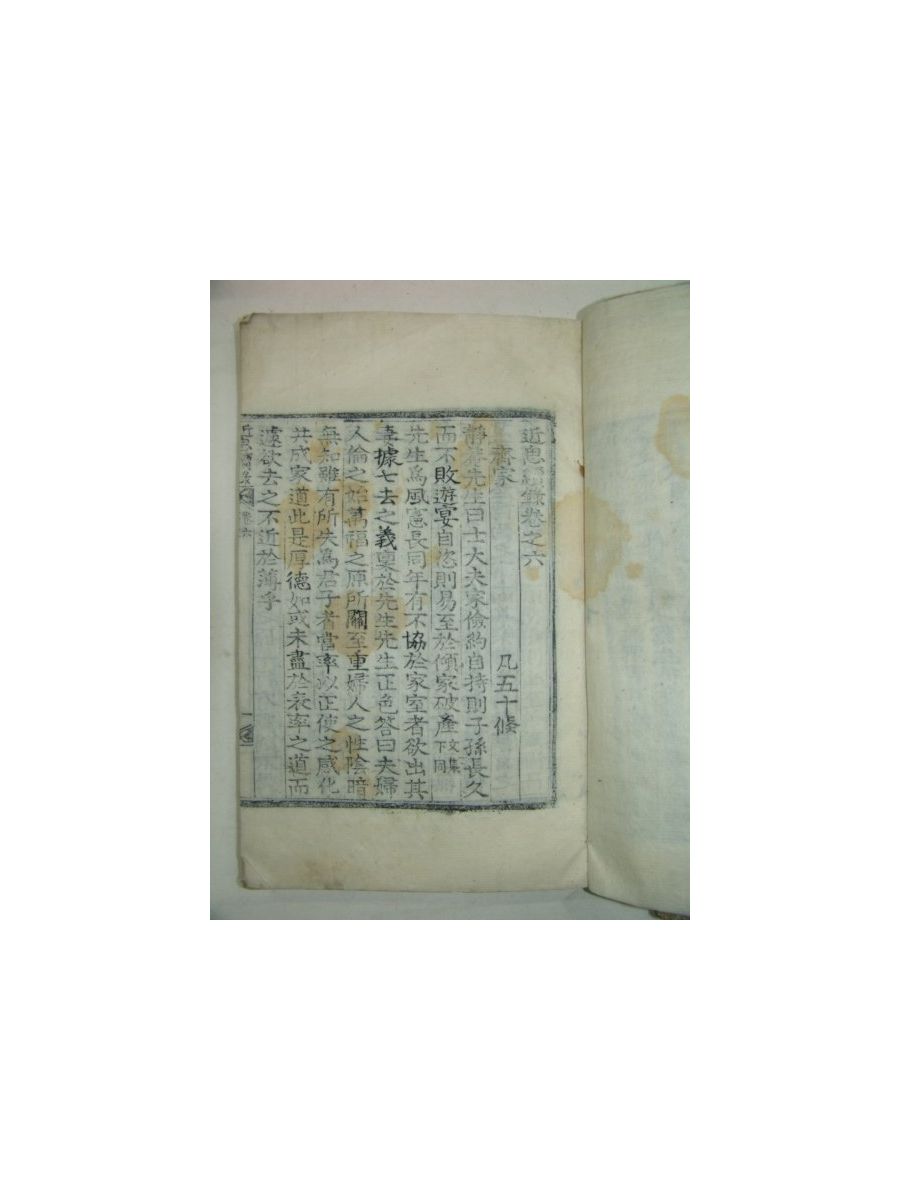 近思續錄卷之六
齊家 凡五十條
靜菴先生曰士大夫家儉約自持則子孫長久
而不敗遊宴自恣則易至於傾家破產 文集下同
先生爲風憲長同年有不協於家室者欲出其
妻據七去之義稟於先生先生正色答曰夫婦
人倫之始萬福之原所關至重婦人之性陰暗
無知雖有所失爲君子者當率以正使之感化
共成家道此是厚德如或未盡於表率之道而
遽欲去之不近於薄乎
近思續錄 卷六 一